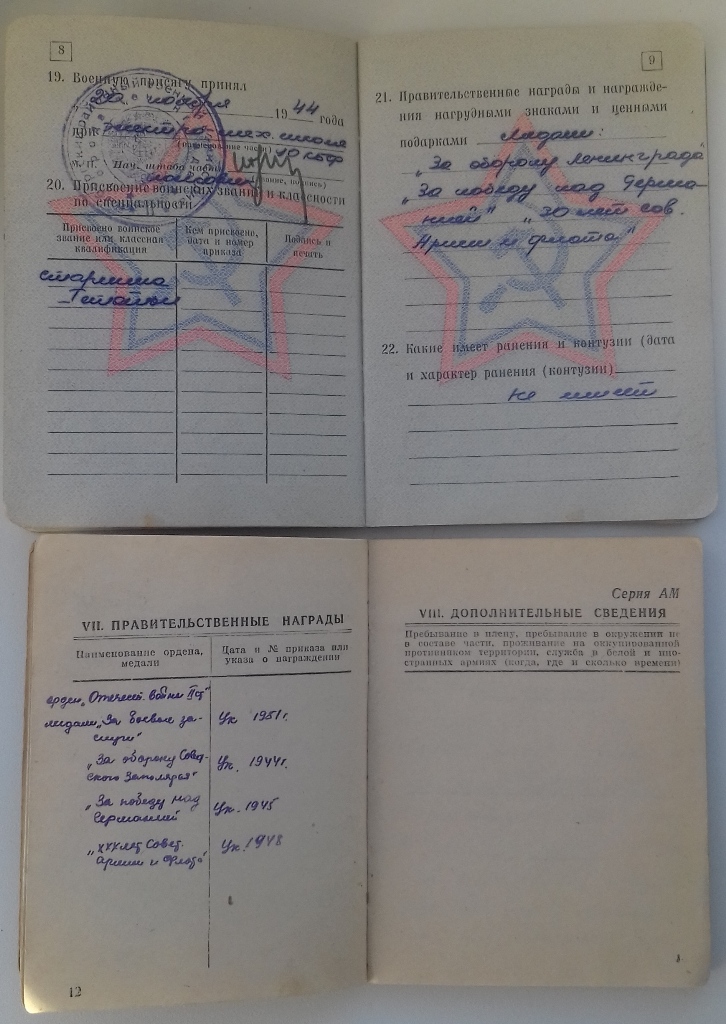 8
19. Военную присягу принял
ноября 1944 года
при
20. Присвоение воинских званий и классности
по специальности
Присвоено воинское
звание или классная
квалификация
Кем присвоено,
дата и номер
приказа
Подпись и
печать
старшина
I статьи
9
21. Правительственные награды и награжде-
ния нагрудными знаками и ценными
подарками медали:
„За оборону Ленинграда"
„За победу над Герма-
нией" „30 лет сов.
Армии и флота"
22. Какие имеет ранения и контузии (дата
и характер ранения (контузии)
не имеет
VII. ПРАВИТЕЛЬСТВЕННЫЕ НАГРАДЫ
Наименование ордена,
медали
Дата и № приказа или
указа о награждении
орден „Отечест. войны II ст"
медали „За боевые за-
слуги" Ук 1951г.
„За оборону Совет-
ского Заполярья" Ук. 1944г.
„За победу над
Германией Ук. 1945
„ХХХ лет Совет.
армии и Флота" Ук. 1948
12
Серия АМ
VIII. ДОПОЛНИТЕЛЬНЫЕ СВЕДЕНИЯ
Пребывание в плену, пребывание в окружении не
в составе части, проживание на оккупированной
противником территории, служба в белой и ино-
странных армиях (когда, где и сколько времени)